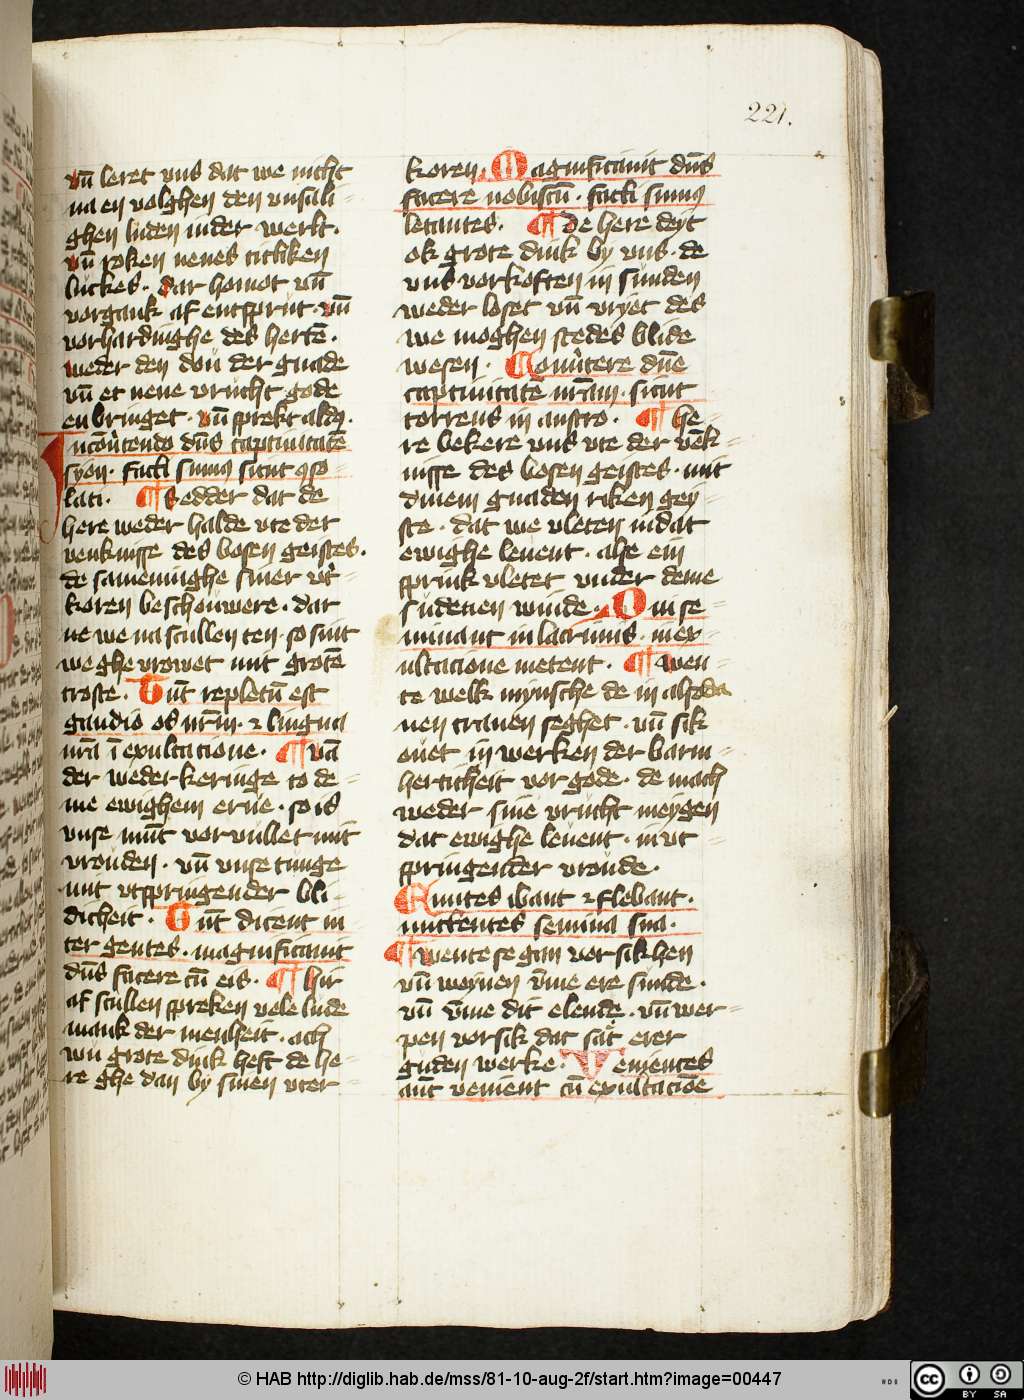 221.
vn̄ leret vns dat we nicht
na en volghen den vnsali-
ghen luden in der werlt.
vn̄ soken neues titliken
luckes. dar homot vn̄
vorgank af entsprūt. vn̄
vorhardinghe des hertē.
weder den dou der gnade
vn̄ et nene vrucht gode
en bringet. vn̄ sprekt aldꝰ.
In cōu̅tendo dn̄s captiuitatē
syon. facti sumꝰ sicut ꝯso
lati. ¶ Sedder dat de
here weder halde vte der
venknisse des bosen geistes.
de sameninghe siner vt̓
koren beschouwere. dar
ne we na scullen ten. so sint
we ghe vrowet mit grotē
troste. Tūc repletū est
gaudio os nr̄m. ⁊ lingua
nr̄a ī exultacione. ¶ vā
der wederkeringe to de-
me ewighem erue. so is
vnse mūt vorvullet mit
vrouden. vn̄ vnse tunge
mit vtspringender bli-
dicheit. Tūc dicent in
ter gentes. magnificauit
dn̄s facere cū eis. ¶ hir
af scullen spreken vele lude
mank der menheit. ach
wu grote dink heft de he-
re ghe dan by sinen vter
koren. Magnificauit dn̄s
facere nobiscū. facti sumꝰ
letantes. ¶ De here deyt
ok grote dink by vns. de
vns vorkoften in sunden
weder loset vn̄ vryet des
we moghen stedes blide
wesen. Cōu̅tere dn̄e
captiuitatē nr̄am. sicut
torrens in austro. ¶ he-
re bekere vns vte der vēk-
nisse des bosen geistes. mit
dinem gnaden riken gey-
ste. dat we vleten in dat
ewighe leuent. alse ein
sprink vletet vnder deme
sudenen winde. Qui se
minant in lacrimis. in ex-
ultacione metent. ¶ wen-
te welk mynsche de in alsoda
nen tranen seghet. vn̄ sik
ouet in werken der barm-
herticheit vor gode. de mach
weder sine vrucht meygen
dat ewighe leuent. in vt-
springender vroude.
Euntes ibant ⁊ flebant.
mittentes semina sua.
¶ wente se gan vor sik hen
vn̄ weynen v̄me ere sunde.
vn̄ v̄me dit elende. vn̄ wer-
pen vor sik dat sāt erer
guden werke. Venientes
aūt venient cū exultacioē
© HAB http://diglib.hab.de/mss/81-10-aug-2f/start.htm?image=00447
HAB
cc
BY SA